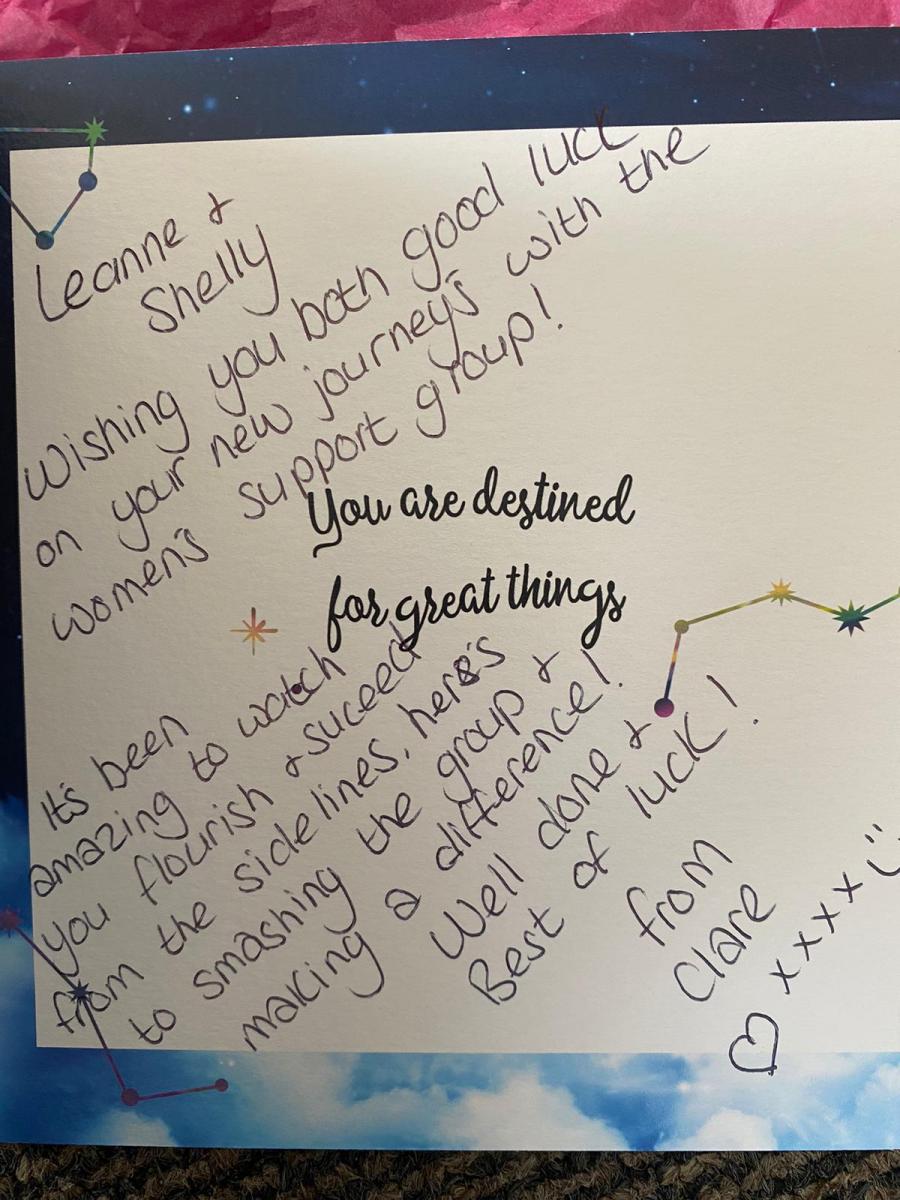 Leanne &
Shelly
Wishing you both good luck
on your new journey's with the
women's support group!
You are destined
for great things
It's been
amazing to watch
you flourish & suceed
from the sidelines, here's
to smashing the group &
making a difference!
Well done &
Best of luck!
from
Clare
♡ xxxx :)